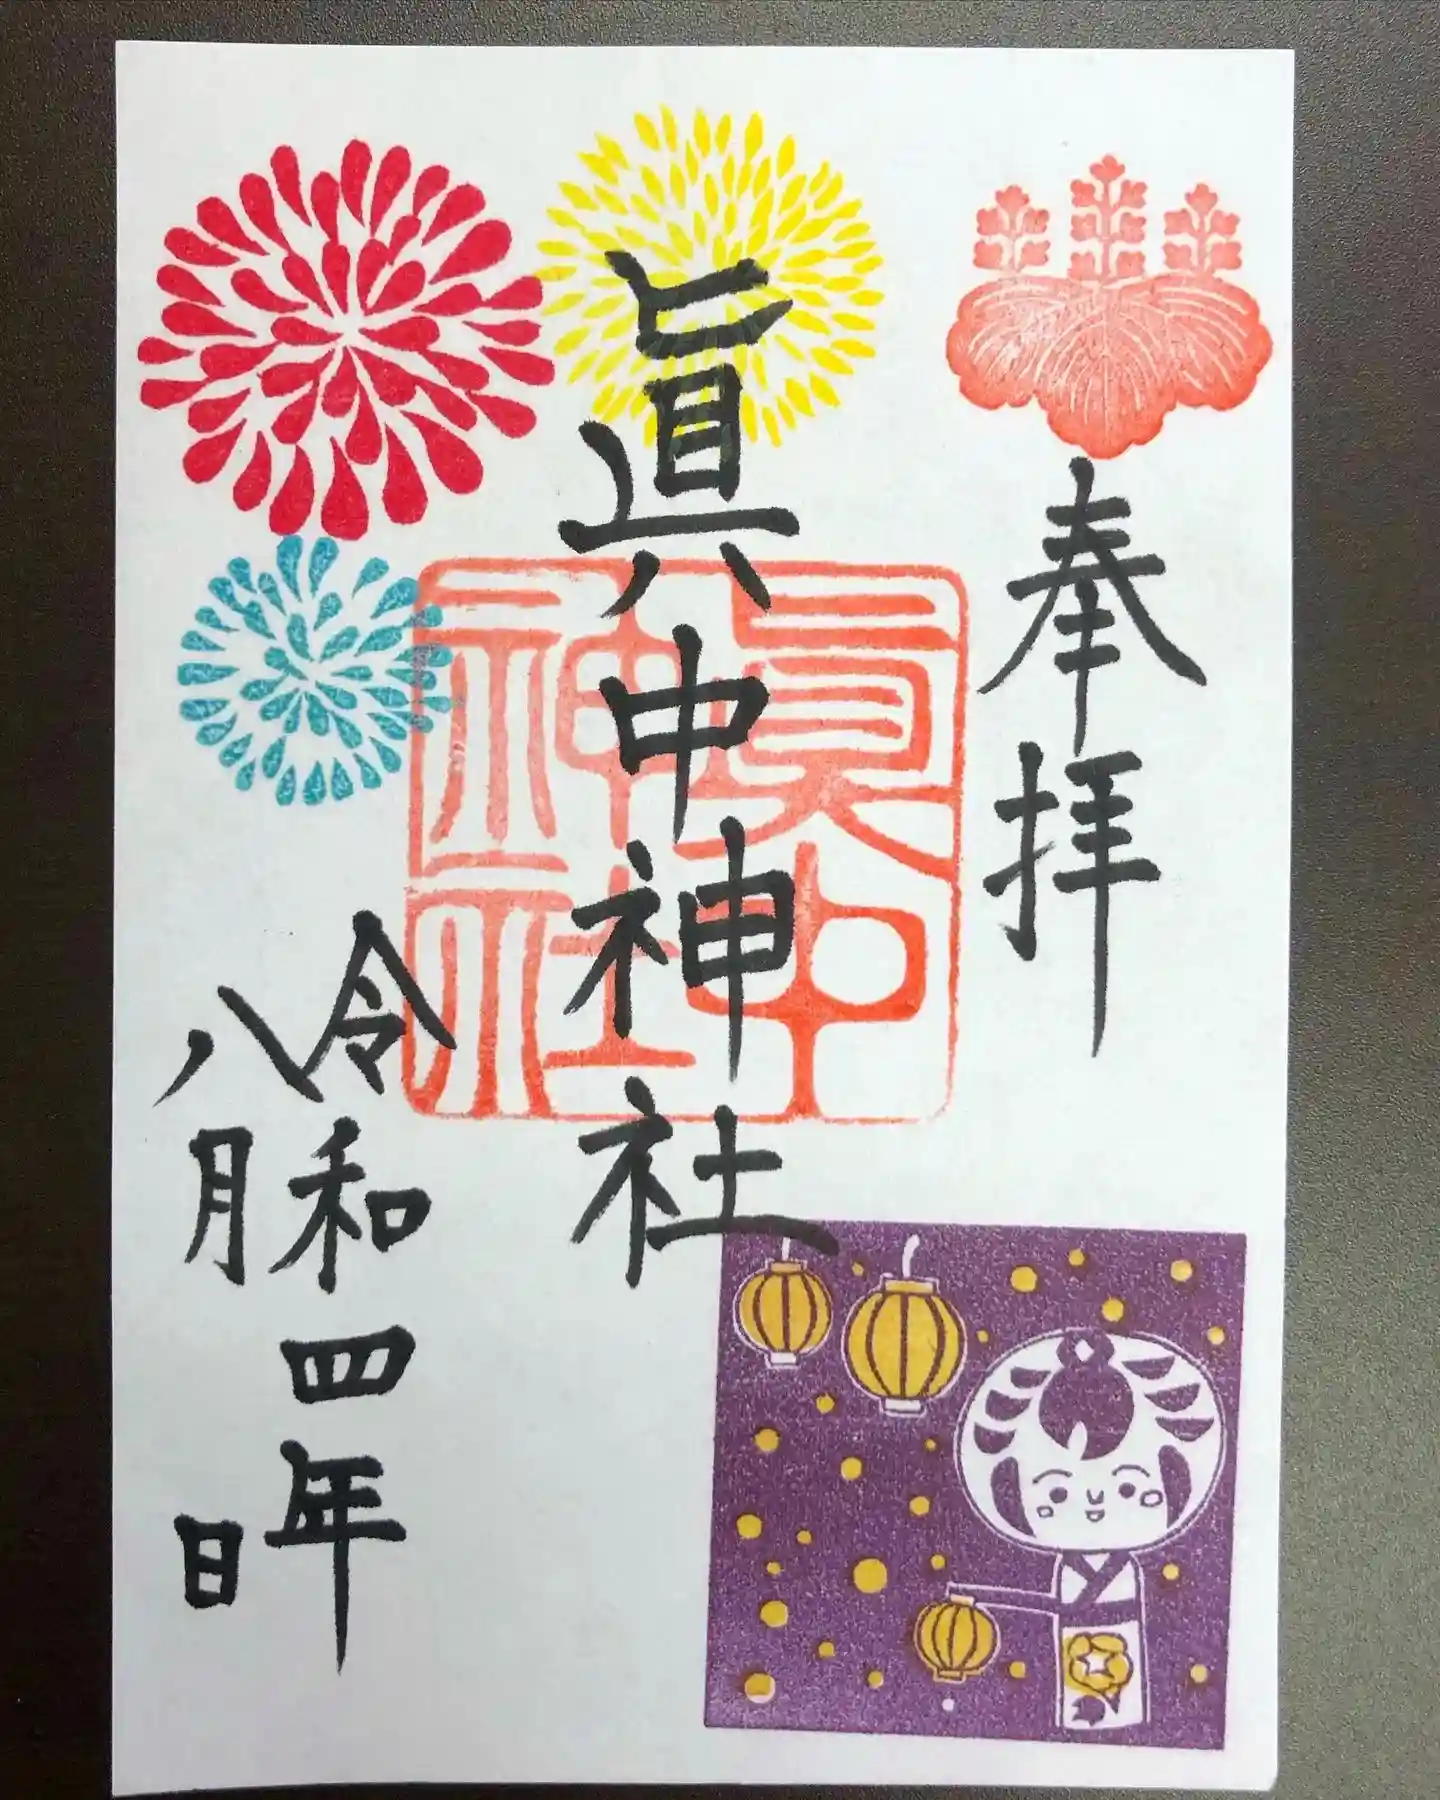 奉拝
眞中神社
眞中神社
令和四年
八月 日